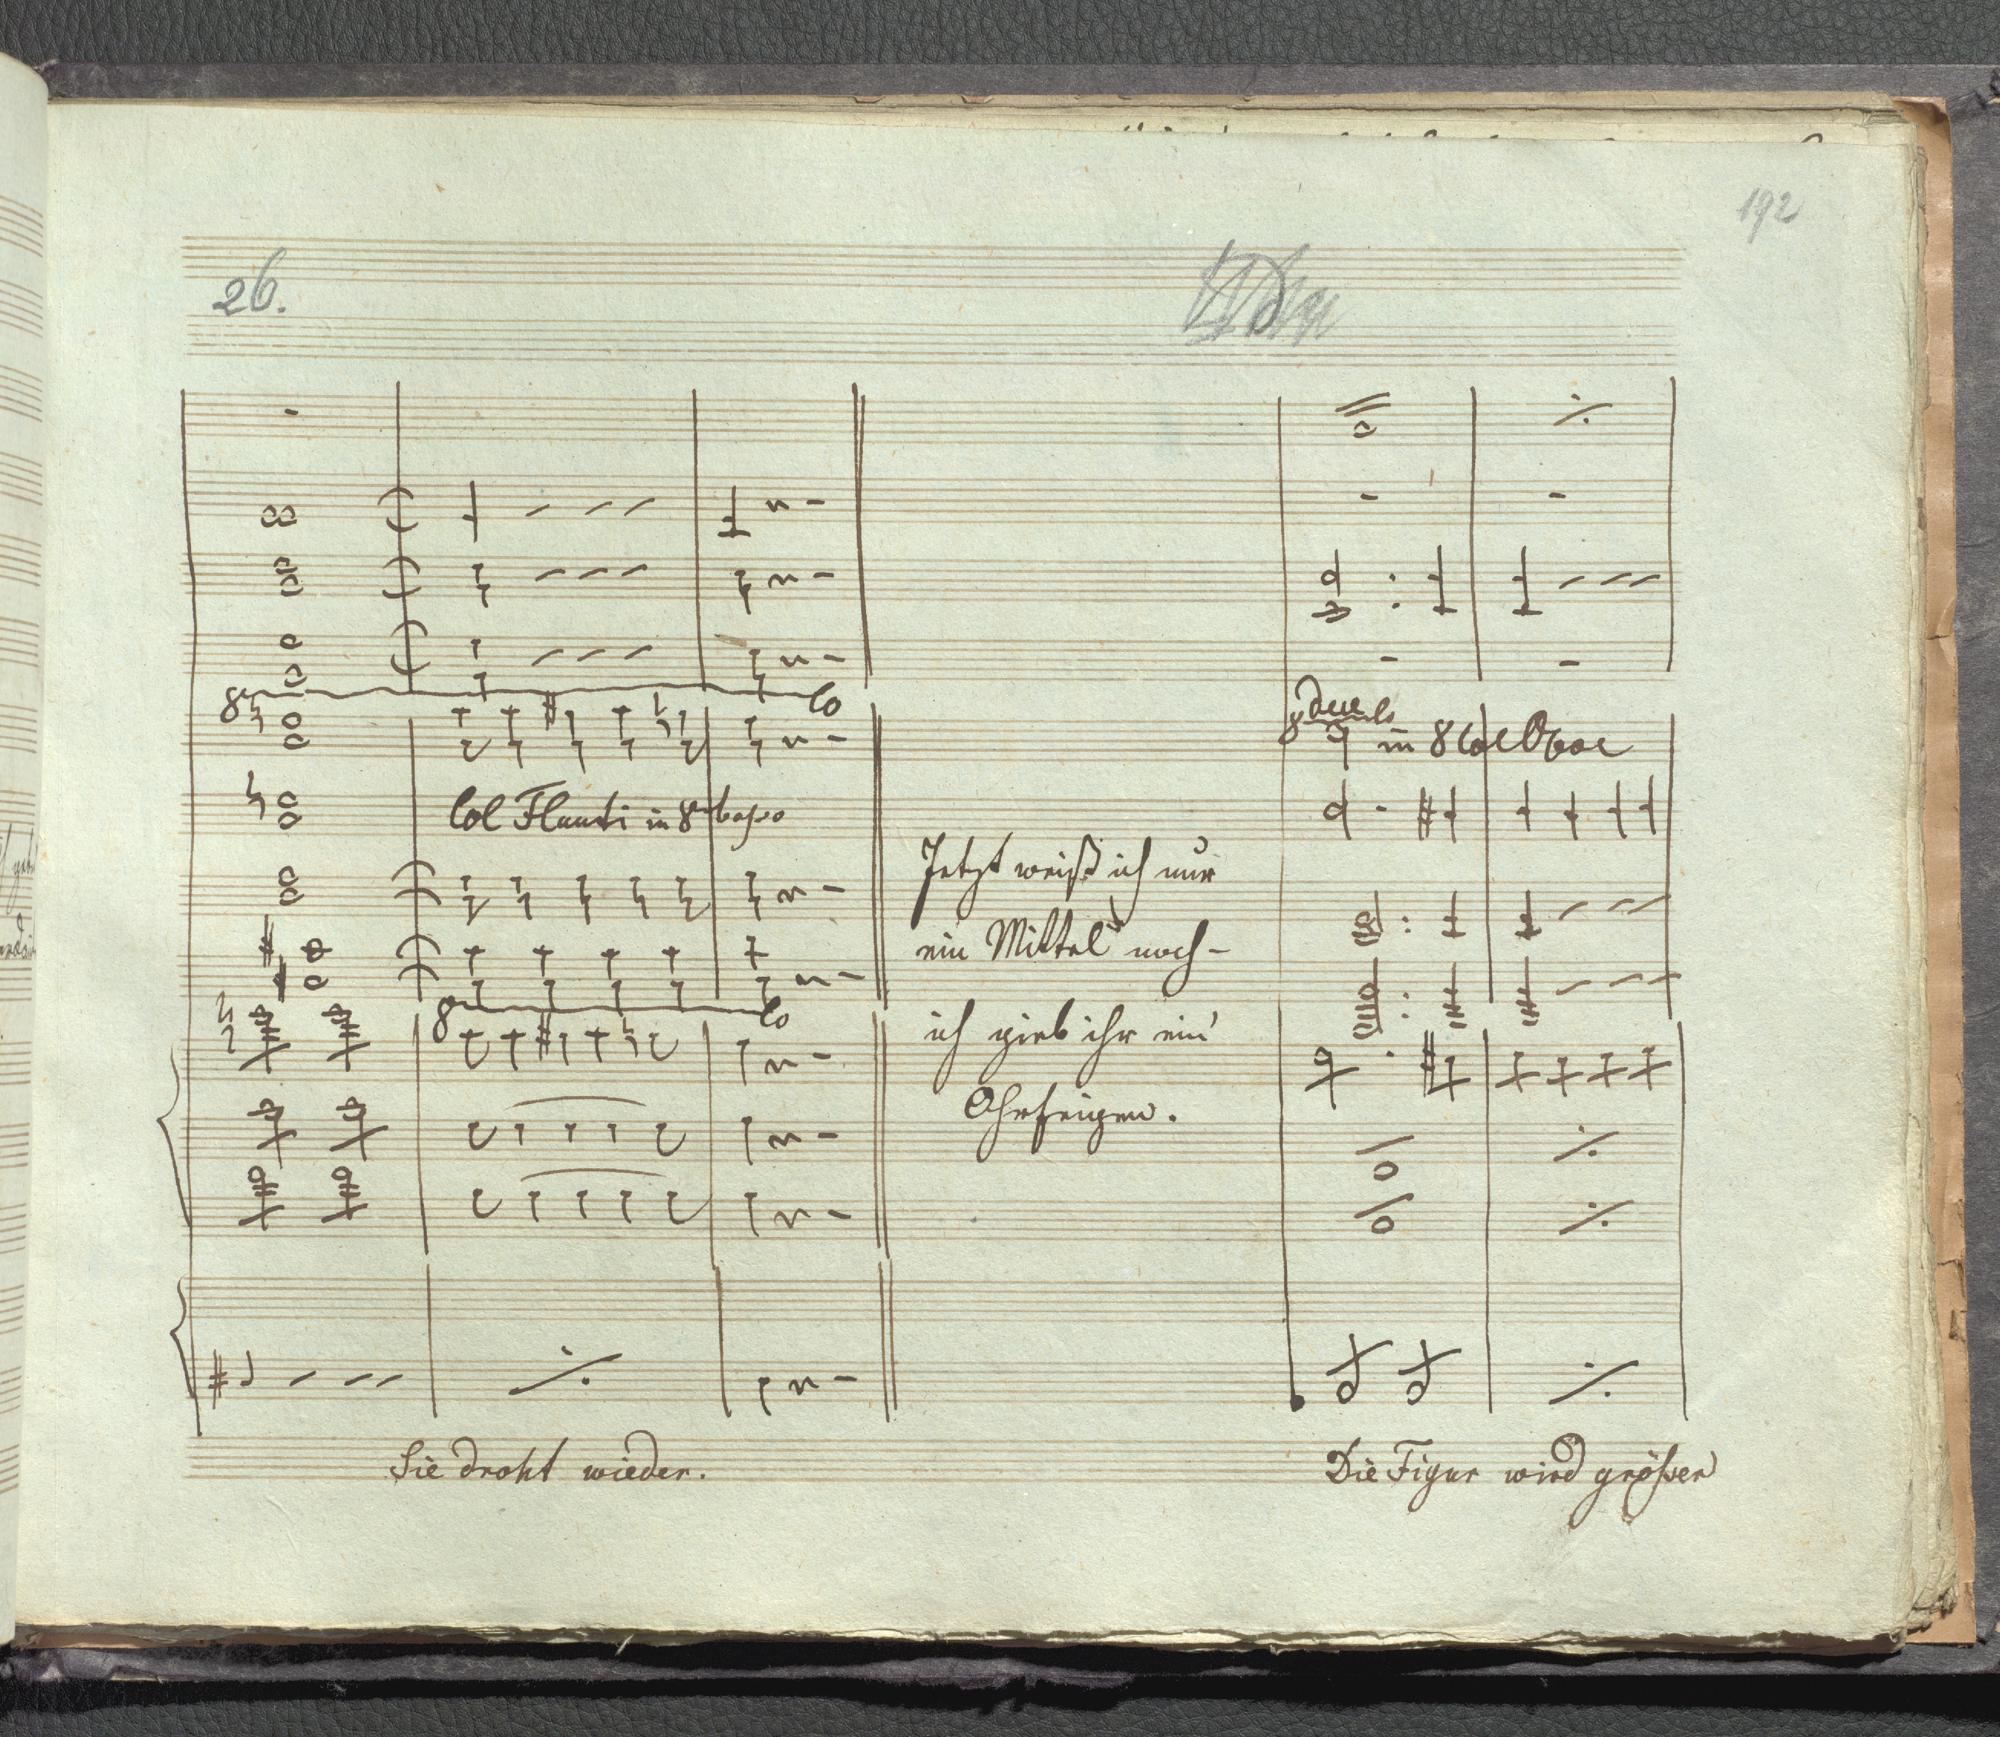 192
26.
8 lo
8 due lo
in 8 Col Oboe
Col Flauti in 8va basso
Jetzt weiß ich nur
ein Mittel noch-
8 lo
ich gieb ihr ein'
Ohrfeigen.
Sie droht wieder.
Die Figur wird größer